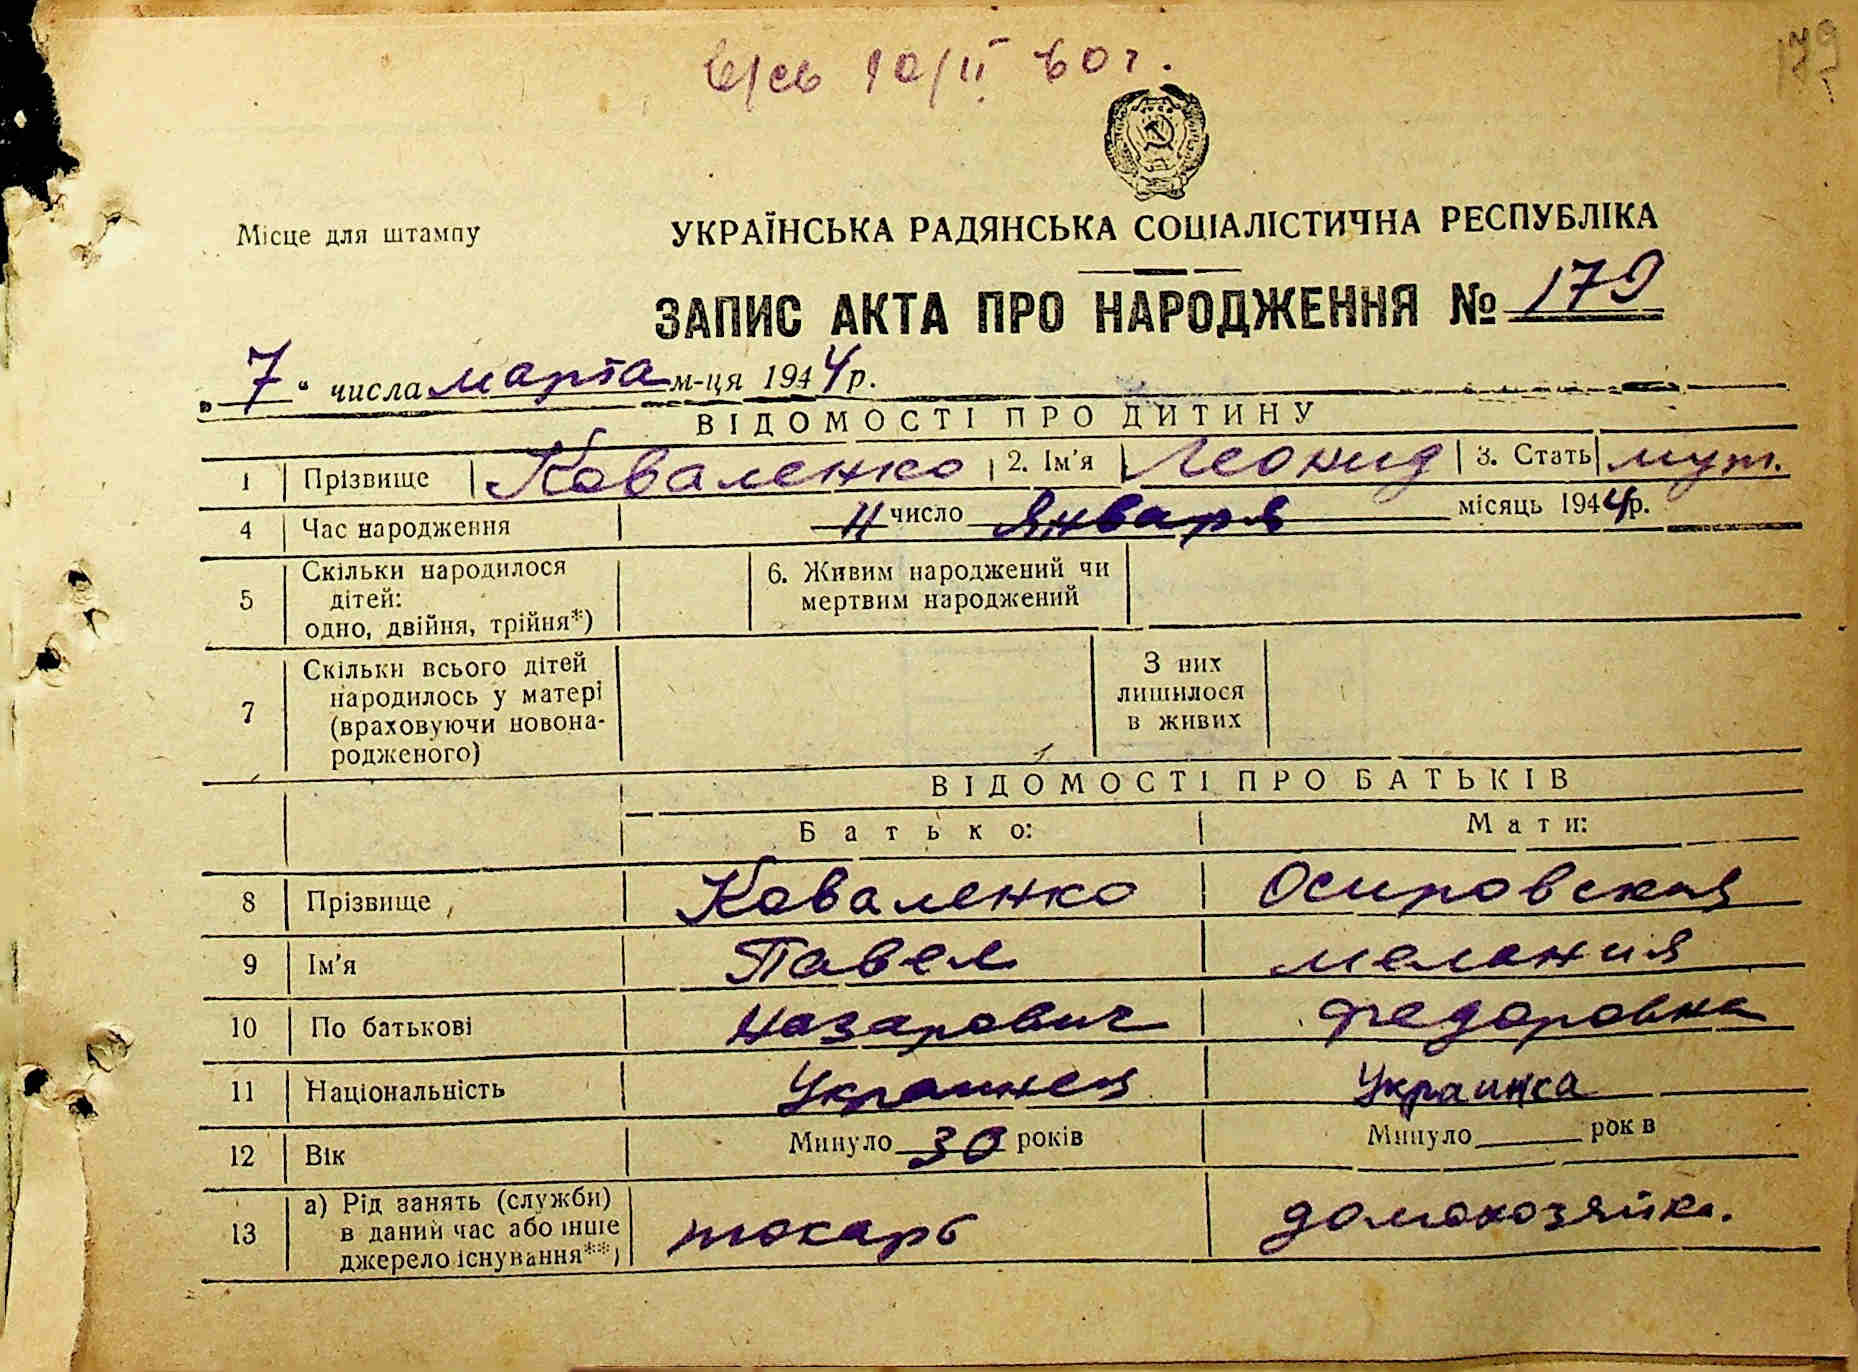 10/II 60 г.
179
Місце для штампу
УКРАЇНСЬКА РАДЯНСЬКА СОЦІАЛІСТИЧНА РЕСПУБЛІКА
ЗАПИС АКТА ПРО НАРОДЖЕННЯ № 179
„7“ числа марта м-ця 1944 р.
ВІДОМОСТІ ПРО ДИТИНУ
1 Прізвище Коваленко 2. Ім'я Леонид 3. Стать муж.
4 Час народження 4 число Января місяць 1944 р.
5 Скільки народилося дітей: одно, двійня, трійня*) 6. Живим народжений чи мертвим народжений
7 Скільки всього дітей народилось у матері (враховуючи новонародженого) З них лишилося в живих
ВІДОМОСТІ ПРО БАТЬКІВ
Батько: Мати:
8 Прізвище Коваленко
9 Ім'я Павел Мелания
10 По батькові Назарович Федоровна
11 Національність Украинец Украинка
12 Вік Минуло 30 років Минуло рок в
13 а) Рід занять (служби) в даний час або інше джерело існування**) токарь домохозяйка.